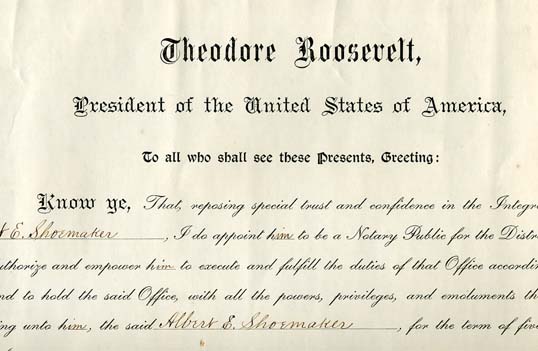 Theodore Roosevelt,
President of the United States of America,
To all who shall see these Presents, Greeting:
Know ye, That, reposing special trust and confidence in the Integr
t E. Shoemaker, I do appoint him to be a Notary Public for the Distr
uthorize and empower him to execute and fulfill the duties of that Office accordin
nd to hold the said Office, with all the powers, privileges, and emoluments th
ing unto him, the said Albert E. Shoemaker, for the term of five